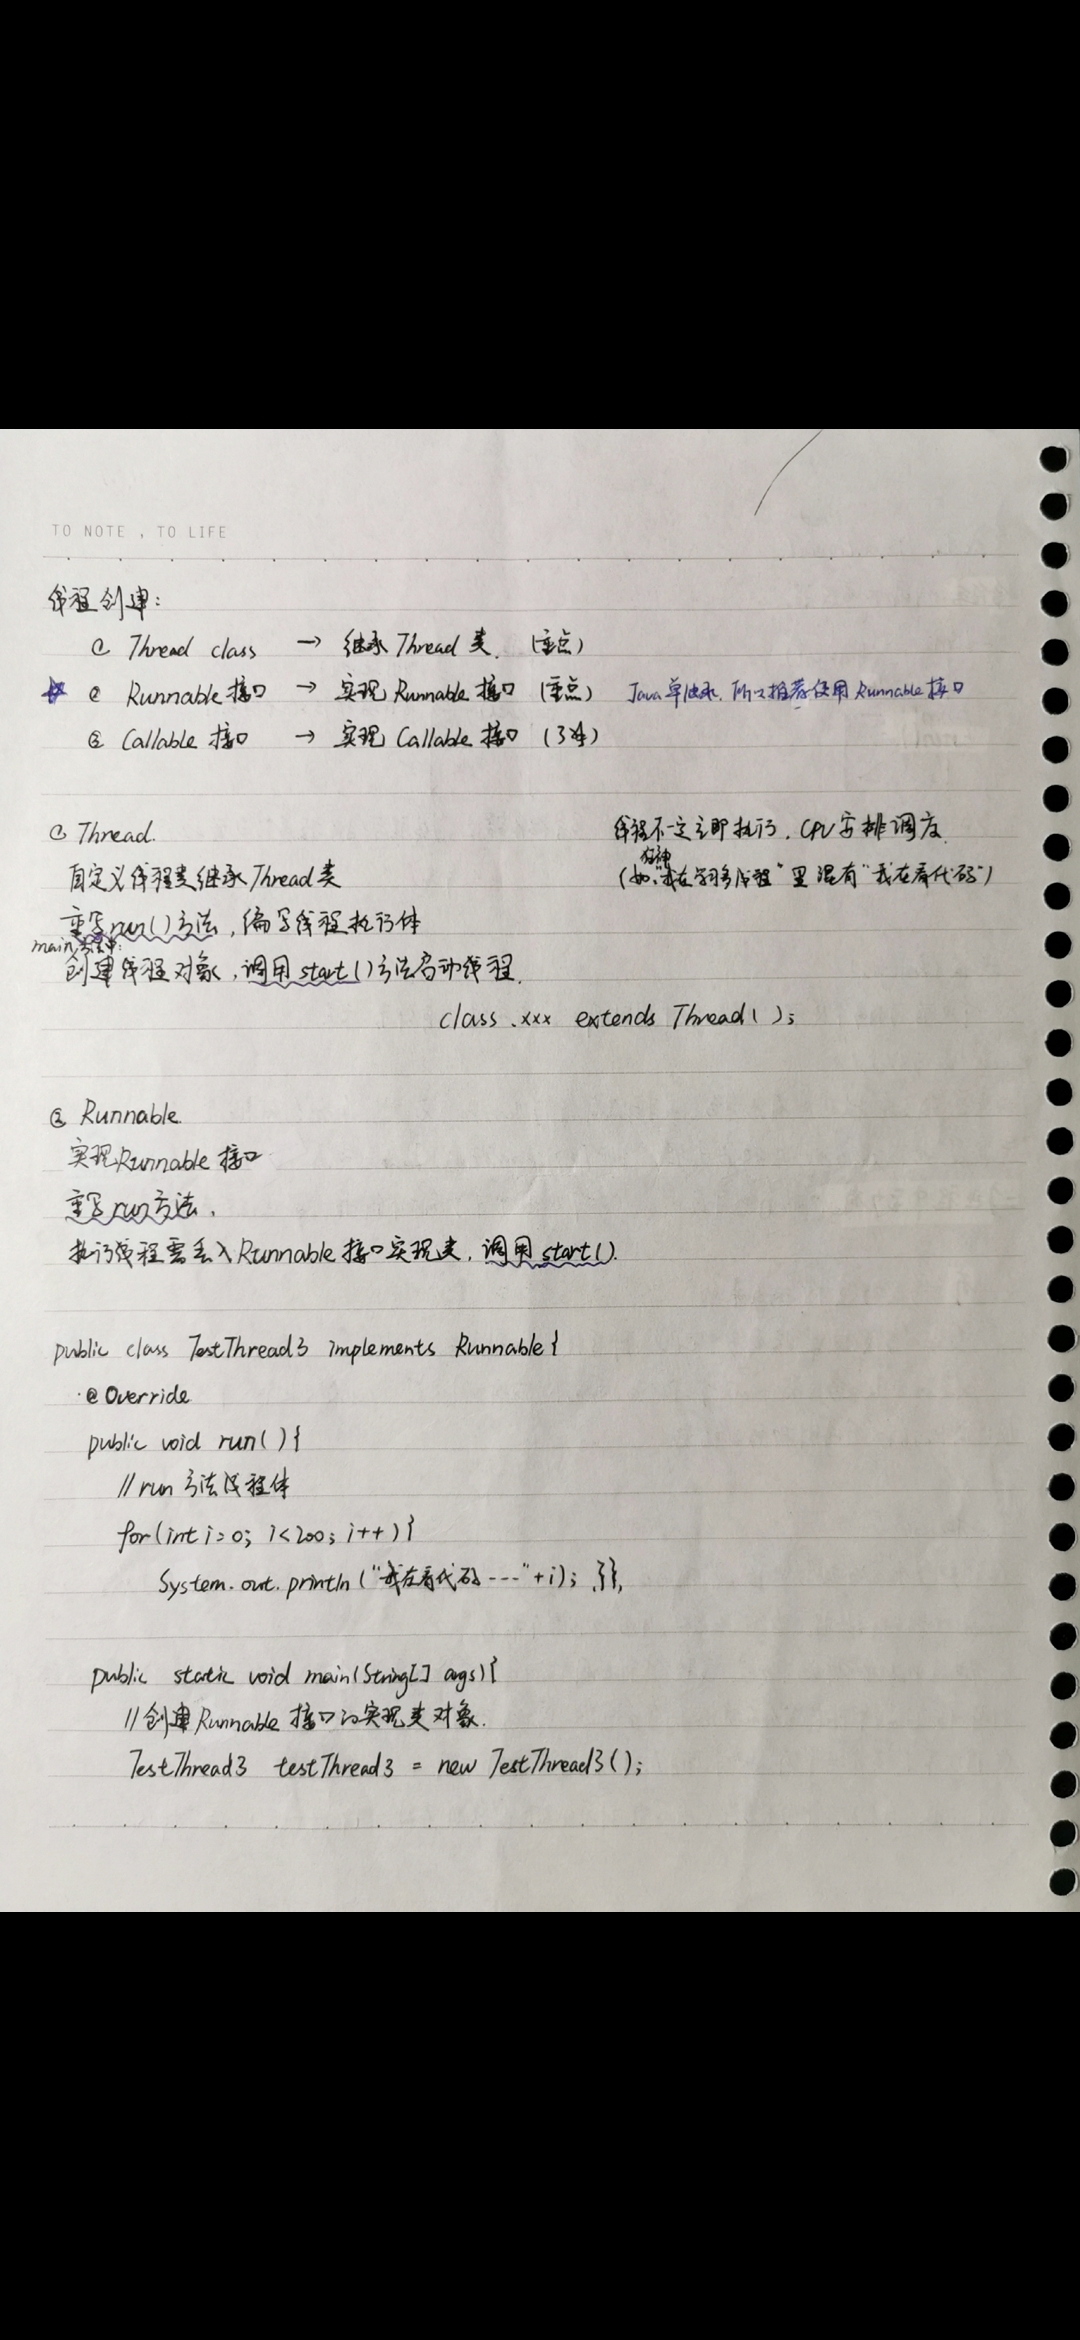 TO NOTE , TO LIFE
线程创建:
① Thread class → 继承 Thread 类. (重点)
☆ ② Runnable 接口 → 实现 Runnable 接口 (重点) Java单继承, 所以推荐使用 Runnable 接口
③ Callable 接口 → 实现 Callable 接口 (了解)
① Thread.
线程不一定立即执行, CPU安排调度.
自定义线程类继承Thread类
狂神
(如:"我在学习多线程"里混有"我在看代码")
重写run()方法, 编写线程执行体
main方法中:
创建线程对象, 调用start()方法启动线程.
class xxx extends Thread( );
② Runnable.
实现Runnable接口
重写run方法,
执行线程需丢入Runnable接口实现类, 调用start().
public class TestThread3 implements Runnable{
@Override
public void run( ){
//run 方法线程体
for(int i=0; i<200; i++){
System.out.println("我在看代码---"+i); }},
public static void main(String[] args){
//创建Runnable 接口的实现类对象.
TestThread3 testThread3 = new TestThread3();